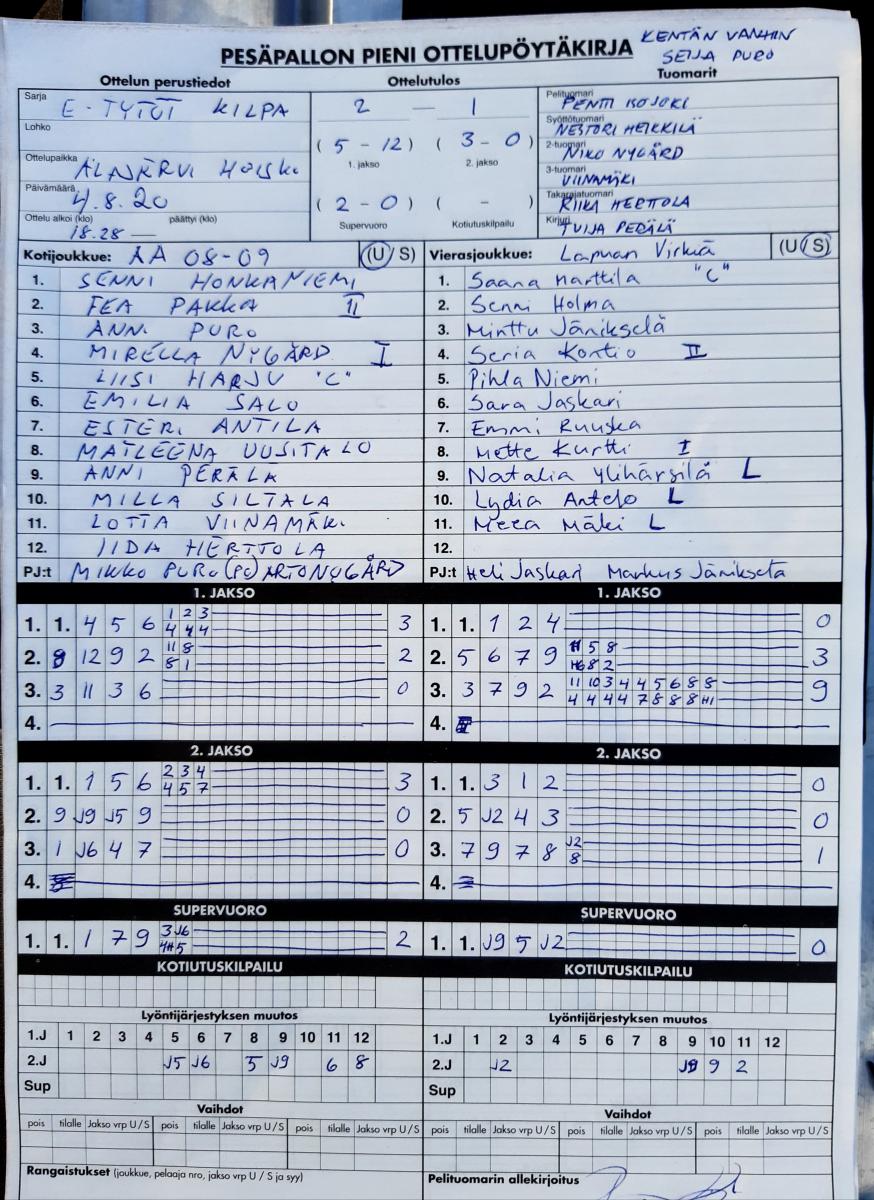 KENTÄN VANHIN
SEIJA PURO
PESÄPALLON PIENI OTTELUPÖYTÄKIRJA
Ottelun perustiedot Ottelutulos Tuomarit
Sarja E-TYTÖT KILPA
Lohko
Ottelupaikka
Päivämäärä 4.8.20
Ottelu alkoi (klo) 18.28 — päättyi (klo)
2 — 1
(5-12) (3-0)
1. jakso 2. jakso
(2-0) ( - )
Supervuoro Kotiutuskilpailu
Pelituomari PENTTI ISOJOKI
Syöttötuomari NESTORI HEIKKILÄ
2-tuomari NIKO NYGÅRD
3-tuomari VIINAMÄKI
Takarajatuomari RIIKA HERTTOLA
Kirjuri TUIJA PERÄLÄ
Kotijoukkue: AA 08-09 (U/S)
1. SENNI HONKANIEMI
2. EEA PAKKA II
3. ANNI PURO
4. MIRELLA NYGÅRD I
5. LIISI HARJU "C"
6. EMILIA SALO
7. ESTERI ANTILA
8. MATLEENA UUSITALO
9. ANNI PERÄLÄ
10. MILLA SILTALA
11. LOTTA VIINAMÄKI
12. IIDA HERTTOLA
PJ:t MIKKO PURO (PC) ARTO NYGÅRD
Vierasjoukkue: Lapuan Virkiä (U/S)
1. Saana Marttila "C"
2. Senni Holma
3. Minttu Jänikselä
4. Seria Kontio II
5. Pihla Niemi
6. Sara Jaskari
7. Emmi Ruuska
8. Mette Kurtti I
9. Natalia Ylihärsilä L
10. Lydia Antelo L
11. Meea Mäki L
12.
PJ:t Heli Jaskari Markus Jänikselä
1. JAKSO
1. 1. 4 5 6 1 2 3 3
4 4 4
2. 8 12 9 2 11 8 2
8 1
3. 3 11 3 6 0
4.
2. JAKSO
1. 1. 1 5 6 2 3 4 3
4 5 7
2. 9 J9 J5 9 0
3. 1 J6 4 7 0
4.
SUPERVUORO
1. 1. 1 7 9 3 J6 2
4H 5
KOTIUTUSKILPAILU
Lyöntijärjestyksen muutos
1.J 1 2 3 4 5 6 7 8 9 10 11 12
2.J J5 J6 5 J9 6 8
Sup
Vaihdot
pois tilalle Jakso vrp U/S pois tilalle Jakso vrp U/S pois tilalle Jakso vrp U/S
Rangaistukset (joukkue, pelaaja nro, jakso vrp U / S ja syy)
1. JAKSO
1. 1. 1 2 4 0
2. 5 6 7 9 5 8 3
H6 8 2
3. 3 7 9 2 11 10 3 4 4 5 6 8 8 9
4 4 4 4 7 8 8 8 H1
4.
2. JAKSO
1. 1. 3 1 2 0
2. 5 J2 4 3 0
3. 7 9 7 8 J2 1
8
4.
SUPERVUORO
1. 1. J9 5 J2 0
KOTIUTUSKILPAILU
Lyöntijärjestyksen muutos
1.J 1 2 3 4 5 6 7 8 9 10 11 12
2.J J2 J9 9 2
Sup
Vaihdot
pois tilalle Jakso vrp U/S pois tilalle Jakso vrp U/S pois tilalle Jakso vrp U/S
Pelituomarin allekirjoitus